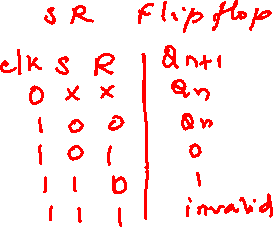 SR flipflop
clk S R Qn+1
0 x x Qn
1 0 0 Qn
1 0 1 0
1 1 0 1
1 1 1 invalid